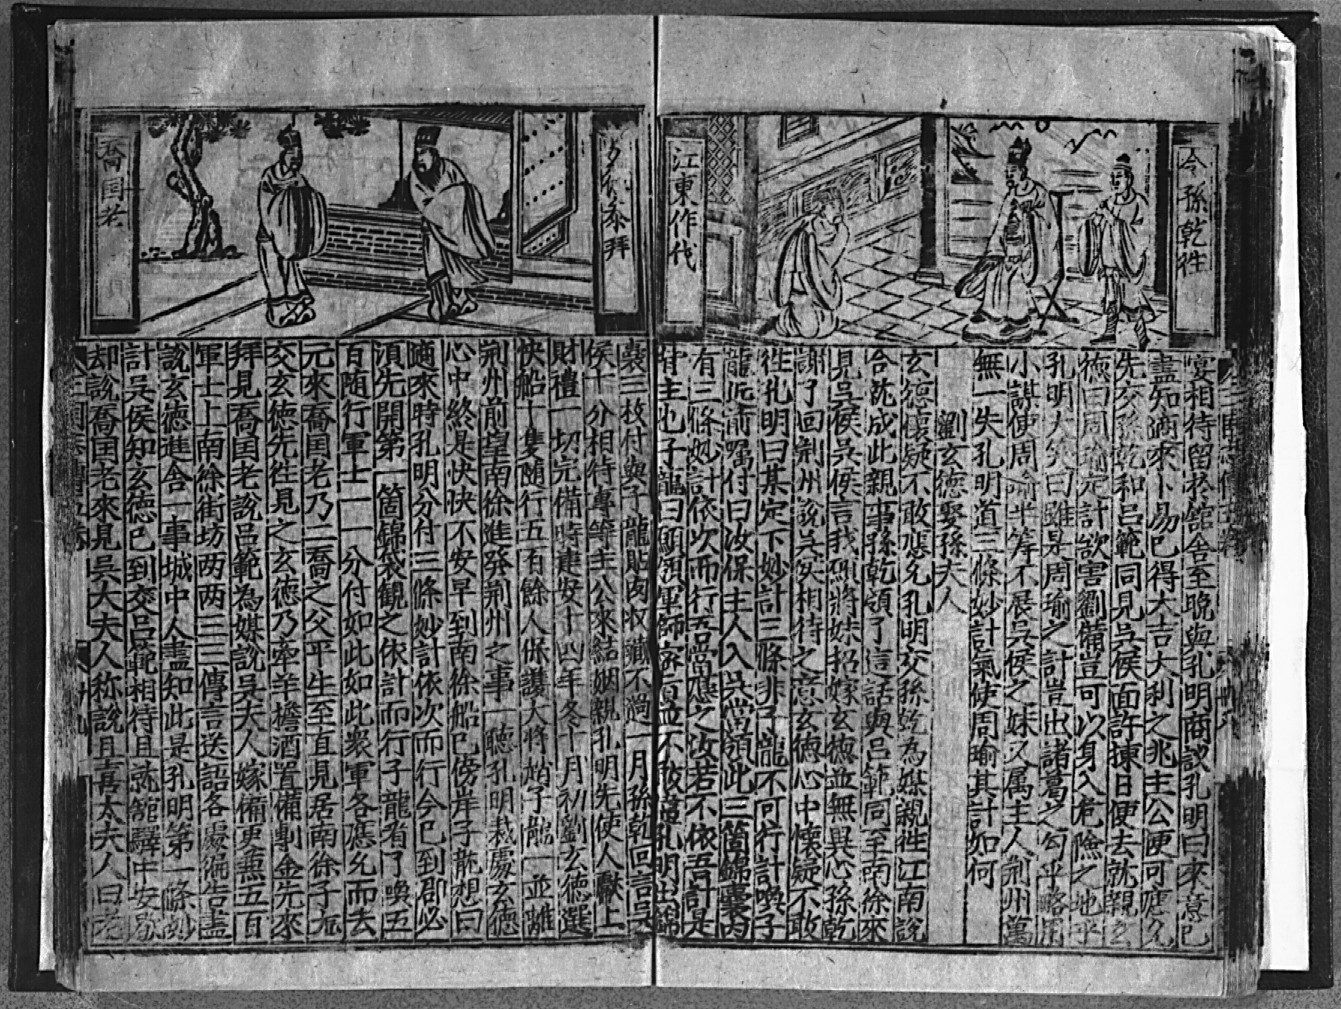 令孫乾徃
江東作代
宴相待留於舘舍至晚與孔明商議孔明曰來意已
盡知適來卜易已得大吉大利之兆主公便可應允
先交孫乾和吕範同見吳侯面許揀日便去就親玄
徳曰周瑜定計欲害劉備豈可以身入危險之地乎
孔明大笑曰雖是周瑜之計豈出諸葛之勾乎略用
小謀使周瑜半筹不展吳侯之妹又属主人荆州萬
無一失孔明道三條妙計氣使周瑜其計如何
劉玄德娶孫夫人
玄德懷疑不敢應允孔明交孫乾為媒親徃江南說
合就成此親事孫乾領了這話與吕範同至南徐來
見吳侯吳侯言我到將妹招嫁玄德並無異心孫乾
謝了回荆州說吳侯相待之意玄德心中懷疑不敢
徃孔明曰某定下妙計三條非子龍不可行計喚子
龍近前嘱付曰汝保主人入吳當領此三箇錦囊内
有三條妙計依次而行吾當應之汝若不依吾計是
背主也子龍曰願領軍師家言並不敢違孔明出錦
囊三枚付與子龍貼肉收藏不過一月孫乾回言吳
侯十分相待專等主公來結姻親孔明先使人獻上
財禮一切完備時建安十四年冬十月初劉玄德選
快船十隻随行五百餘人保護大將趙子龍一並離
荆州前望南徐進發荆州之事一聽孔明裁處玄德
心中終是怏怏不安早到南徐船已傍岸子龍想曰
適來時孔明分付三條妙計依次而行今已到郡必
湏先開第一箇錦袋觀之依計而行子龍看了喚五
百随行軍士一一分付如此如此衆軍各應允而去
元來喬国老乃二喬之父平生至直見居南徐子龍
交玄德先徃見之玄德乃牽羊擔酒置備剸金先來
拜見喬国老說吕範為媒說吳夫人嫁備更兼五百
軍士上南徐街坊两两三三傳言送語各處徧告盡
說玄德進舍一事城中人盡知此是孔明第一條妙
計吳侯知玄德已到交吕範相待且就舘驛中安歇
却說喬国老來見吳大夫人称說且喜太夫人曰老
参拜
喬国老